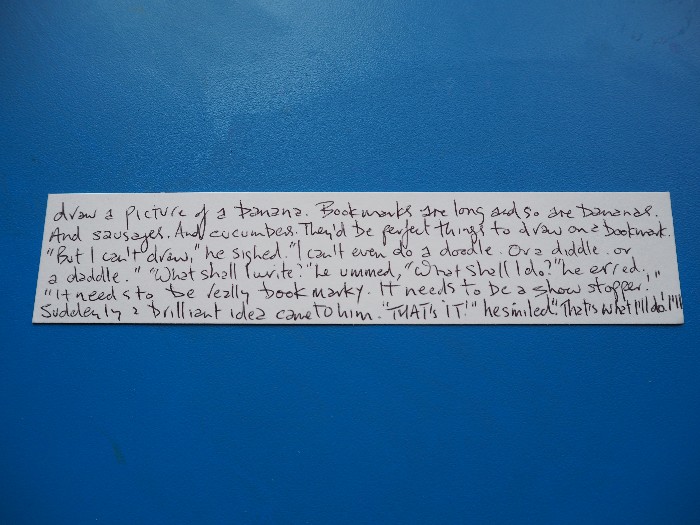 draw a picture of a banana. Bookmarks are long and so are bananas.
And sausages. And cucumbers. They'd be perfect things to draw on a bookmark.
"But I can't draw," he sighed. "I can't even do a doodle. Or a diddle. or
a daddle." "What shall I write?" he ummed, "What shall I do?" he erred.
"It needs to be really bookmarky. It needs to be a show stopper."
Suddenly a brilliant idea came to him. "THAT'S IT!" he smiled. "That's what I'll do!"